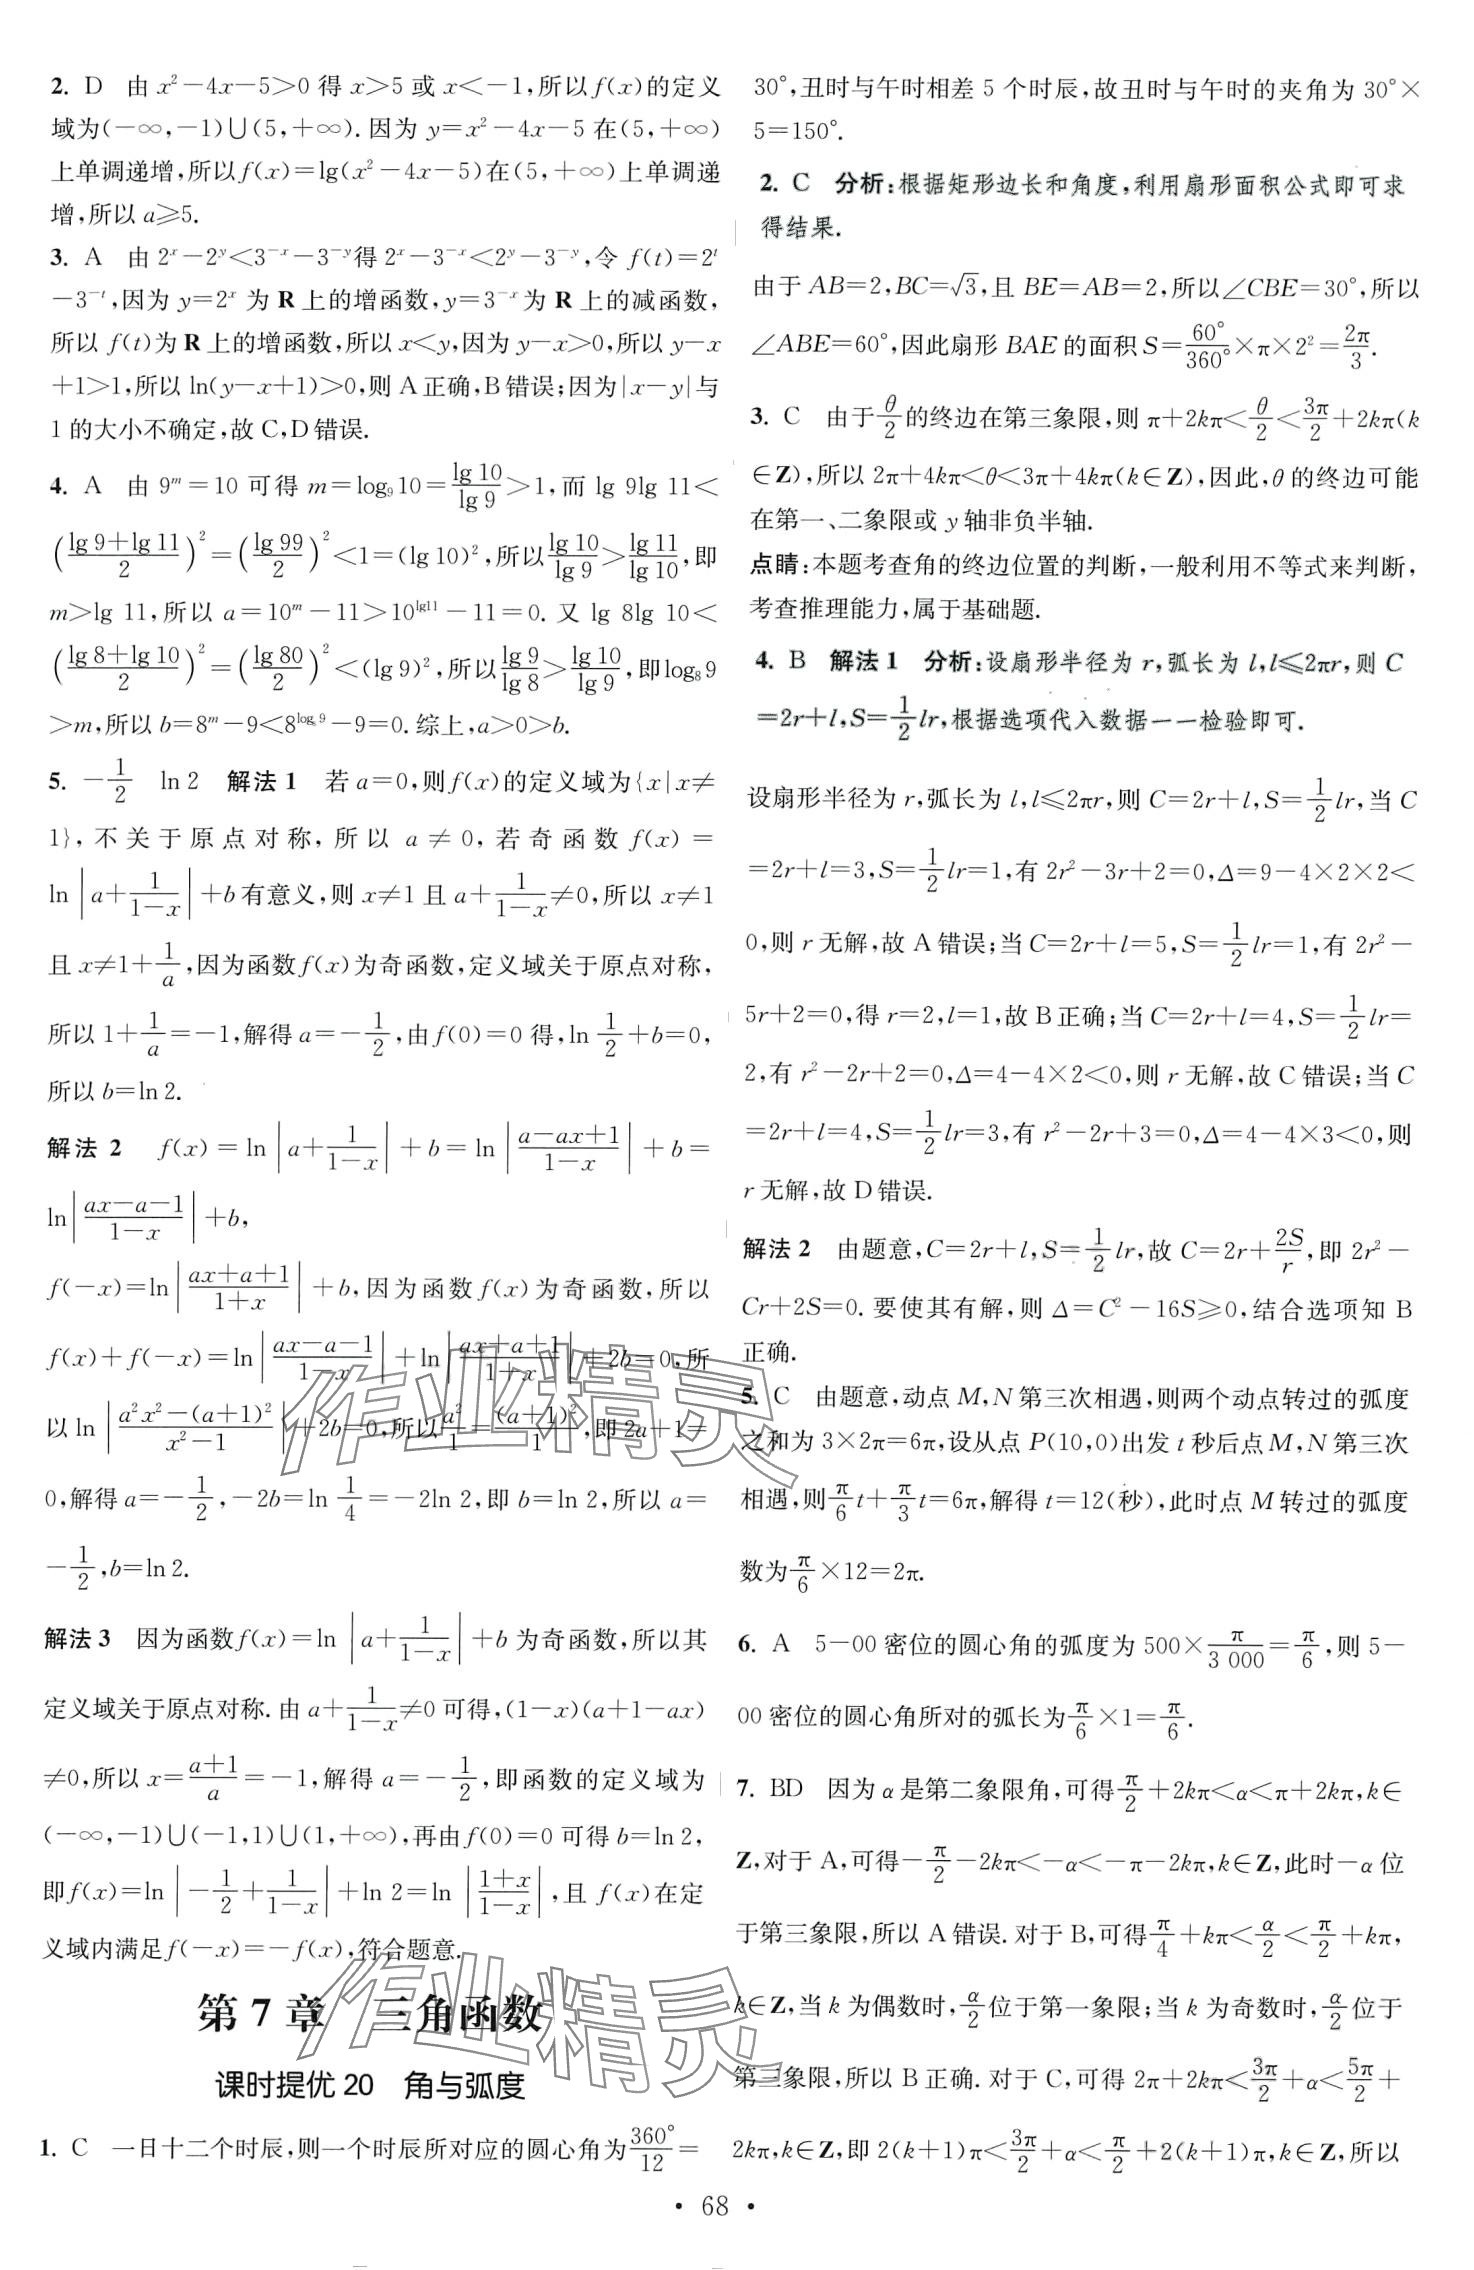 2. D 由 x²－4x－5＞0 得 x＞5 或 x＜－1,所以 f(x)的定义
域为(－∞,－1)∪(5,＋∞). 因为 y＝x²－4x－5 在(5,＋∞)
上单调递增,所以 f(x)＝lg(x²－4x－5)在(5,＋∞)上单调递
增,所以 a≥5.
3. A 由 2ˣ－2ʸ＜3⁻ˣ－3⁻ʸ得 2ˣ－3⁻ˣ＜2ʸ－3⁻ʸ,令 f(t)＝2ᵗ
－3⁻ᵗ,因为 y＝2ˣ 为 R 上的增函数,y＝3⁻ˣ为 R 上的减函数,
所以 f(t)为 R 上的增函数,所以 x＜y,因为 y－x＞0,所以 y－x
＋1＞1,所以 ln(y－x＋1)＞0,则 A 正确,B 错误;因为|x－y|与
1 的大小不确定,故 C,D 错误.
4. A 由 9ᵐ＝10 可得 m＝log₉10＝lg 10/lg 9＞1,而 lg 9lg 11＜
((lg 9＋lg 11)/2)²＝(lg 99/2)²＜1＝(lg 10)²,所以lg 10/lg 9＞lg 11/lg 10,即
m＞lg 11,所以 a＝10ᵐ－11＞10^(lg11)－11＝0. 又 lg 8lg 10＜
((lg 8＋lg 10)/2)²＝(lg 80/2)²＜(lg 9)²,所以lg 9/lg 8＞lg 10/lg 9,即log₈9
＞m,所以 b＝8ᵐ－9＜8^(log₈9)－9＝0. 综上,a＞0＞b.
5. －1/2 ln 2 解法 1 若 a＝0,则 f(x)的定义域为{x|x≠
1},不关于原点对称,所以 a≠0,若奇函数 f(x)＝
ln|a＋1/(1－x)|＋b 有意义,则 x≠1 且 a＋1/(1－x)≠0,所以 x≠1
且 x≠1＋1/a,因为函数 f(x)为奇函数,定义域关于原点对称,
所以 1＋1/a＝－1,解得 a＝－1/2,由 f(0)＝0 得,ln 1/2＋b＝0,
所以 b＝ln 2.
解法 2 f(x)＝ln|a＋1/(1－x)|＋b＝ln|(a－ax＋1)/(1－x)|＋b＝
ln|(ax－a－1)/(1－x)|＋b,
f(－x)＝ln|(ax＋a＋1)/(1＋x)|＋b,因为函数 f(x)为奇函数,所以
f(x)＋f(－x)＝ln|(ax－a－1)/(1－x)|＋ln|(ax＋a＋1)/(1＋x)|＋2b＝0,所
以 ln|(a²x²－(a＋1)²)/(x²－1)|＋2b＝0,所以a²/1＝(a＋1)²/1,即 2a＋1＝
0,解得 a＝－1/2,－2b＝ln 1/4＝－2ln 2,即 b＝ln 2,所以 a＝
－1/2,b＝ln 2.
解法 3 因为函数 f(x)＝ln|a＋1/(1－x)|＋b 为奇函数,所以其
定义域关于原点对称. 由 a＋1/(1－x)≠0 可得,(1－x)(a＋1－ax)
≠0,所以 x＝(a＋1)/a＝－1,解得 a＝－1/2,即函数的定义域为
(－∞,－1)∪(－1,1)∪(1,＋∞),再由 f(0)＝0 可得 b＝ln 2,
即 f(x)＝ln|－1/2＋1/(1－x)|＋ln 2＝ln|(1＋x)/(1－x)|,且 f(x)在定
义域内满足 f(－x)＝－f(x),符合题意.
第 7 章 三角函数
课时提优 20 角与弧度
1. C 一日十二个时辰,则一个时辰所对应的圆心角为360°/12＝
30°,丑时与午时相差 5 个时辰,故丑时与午时的夹角为 30°×
5＝150°.
2. C 分析:根据矩形边长和角度,利用扇形面积公式即可求
得结果.
由于 AB＝2,BC＝√3,且 BE＝AB＝2,所以∠CBE＝30°,所以
∠ABE＝60°,因此扇形 BAE 的面积 S＝60°/360°×π×2²＝2π/3.
3. C 由于θ/2的终边在第三象限,则 π＋2kπ＜θ/2＜3π/2＋2kπ(k
∈Z),所以 2π＋4kπ＜θ＜3π＋4kπ(k∈Z),因此,θ 的终边可能
在第一、二象限或 y 轴非负半轴.
点睛:本题考查角的终边位置的判断,一般利用不等式来判断,
考查推理能力,属于基础题.
4. B 解法 1 分析:设扇形半径为 r,弧长为 l,l≤2πr,则 C
＝2r＋l,S＝1/2lr,根据选项代入数据一一检验即可.
设扇形半径为 r,弧长为 l,l≤2πr,则 C＝2r＋l,S＝1/2lr,当 C
＝2r＋l＝3,S＝1/2lr＝1,有 2r²－3r＋2＝0,Δ＝9－4×2×2＜
0,则 r 无解,故 A 错误;当 C＝2r＋l＝5,S＝1/2lr＝1,有 2r²－
5r＋2＝0,得 r＝2,l＝1,故 B 正确;当 C＝2r＋l＝4,S＝1/2lr＝
2,有 r²－2r＋2＝0,Δ＝4－4×2＜0,则 r 无解,故 C 错误;当 C
＝2r＋l＝4,S＝1/2lr＝3,有 r²－2r＋3＝0,Δ＝4－4×3＜0,则
r 无解,故 D 错误.
解法 2 由题意,C＝2r＋l,S＝1/2lr,故 C＝2r＋2S/r,即 2r²－
Cr＋2S＝0. 要使其有解,则 Δ＝C²－16S≥0,结合选项知 B
正确.
5. C 由题意,动点 M,N 第三次相遇,则两个动点转过的弧度
之和为 3×2π＝6π,设从点 P(10,0)出发 t 秒后点 M,N 第三次
相遇,则π/6t＋π/3t＝6π,解得 t＝12(秒),此时点 M 转过的弧度
数为π/6×12＝2π.
6. A 5－00 密位的圆心角的弧度为 500×π/3 000＝π/6,则 5－
00 密位的圆心角所对的弧长为π/6×1＝π/6.
7. BD 因为 α 是第二象限角,可得π/2＋2kπ＜α＜π＋2kπ,k∈
Z,对于 A,可得－π/2－2kπ＜－α＜－π－2kπ,k∈Z,此时－α 位
于第三象限,所以 A 错误. 对于 B,可得π/4＋kπ＜α/2＜π/2＋kπ,
k∈Z,当 k 为偶数时,α/2位于第一象限;当 k 为奇数时,α/2位于
第三象限,所以 B 正确. 对于 C,可得 2π＋2kπ＜3π/2＋α＜5π/2＋
2kπ,k∈Z,即 2(k＋1)π＜3π/2＋α＜π/2＋2(k＋1)π,k∈Z,所以
• 68 •
作业精灵
作业精灵